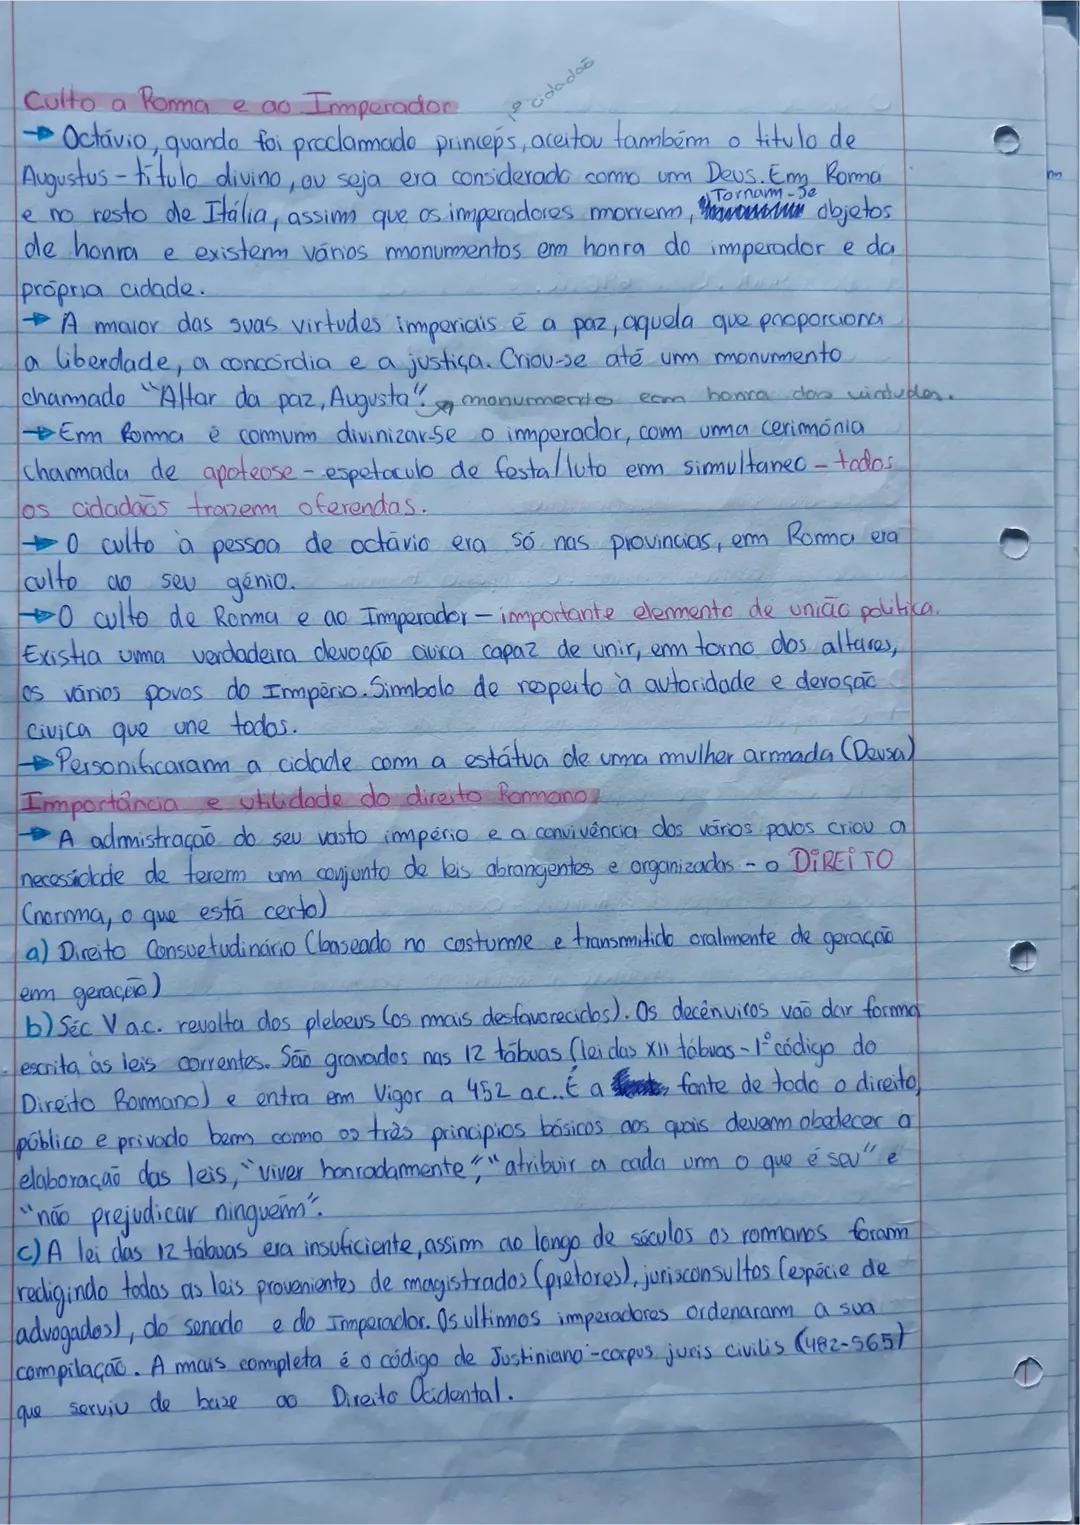 Culto a Roma e ao Imperador
1º cidadão
→ Octávio, quando foi proclamado princeps, aceitou também o titulo de
Augustus - título divino, ou seja era considerado como um Deus. Em Roma
e no resto de Itália, assim que os imperadores morrem, Tornam-se objetos
de honra e existem vários monumentos em honra do imperador e da
própria cidade.
→ A maior das suas virtudes imperiais é a paz, aquela que proporciona
a liberdade, a concórdia e a justiça. Criou-se até um monumento
chamado "Altar da paz, Augusta". → monumento em honra das virtudes.
→ Em Roma é comum divinizar-se o imperador, com uma cerimónia
chamada de apoteose - espetaculo de festa/luto em simultaneo - todos
os cidadãos trazem oferendas.
→ O culto à pessoa de octávio era só nas provincias, em Roma era
culto ao seu génio.
→ O culto de Roma e ao Imperador - importante elemento de união politica.
Existia uma verdadeira devoção civica capaz de unir, em torno dos altares,
os vários povos do Império. Simbolo de respeito à autoridade e devoção
civica que une todos.
→ Personificaram a cidade com a estátua de uma mulher armada (Deusa)
Importância e utilidade do direito Romano
→ A admistração do seu vasto império e a convivência dos vários povos criou a
necessidade de terem um conjunto de leis abrangentes e organizadas - o DIREITO
(norma, o que está certo)
a) Direito Consuetudinário (baseado no costume e transmitido oralmente de geração
em geração)
b) Séc V a.c. revolta dos plebeus (os mais desfavorecidos). Os decênviros vão dar forma
escrita às leis correntes. São gravados nas 12 tábuas (lei das XII tábuas - 1º código do
Direito Romano) e entra em Vigor a 452 a.c.. É a fonte de todo o direito,
público e privado bem como os três principios básicos aos quais devem obedecer a
elaboração das leis, "viver honradamente", "atribuir a cada um o que é seu" e
"não prejudicar ninguém".
c) A lei das 12 tábuas era insuficiente, assim ao longo de séculos os romanos foram
redigindo todas as leis provenientes de magistrados (pretores), jurisconsultos (espécie de
advogados), do senado e do Imperador. Os ultimos imperadores ordenaram a sua
compilação. A mais completa é o código de Justiniano - corpus juris civilis (482-565)
que serviu de base ao Direito Ocidental.